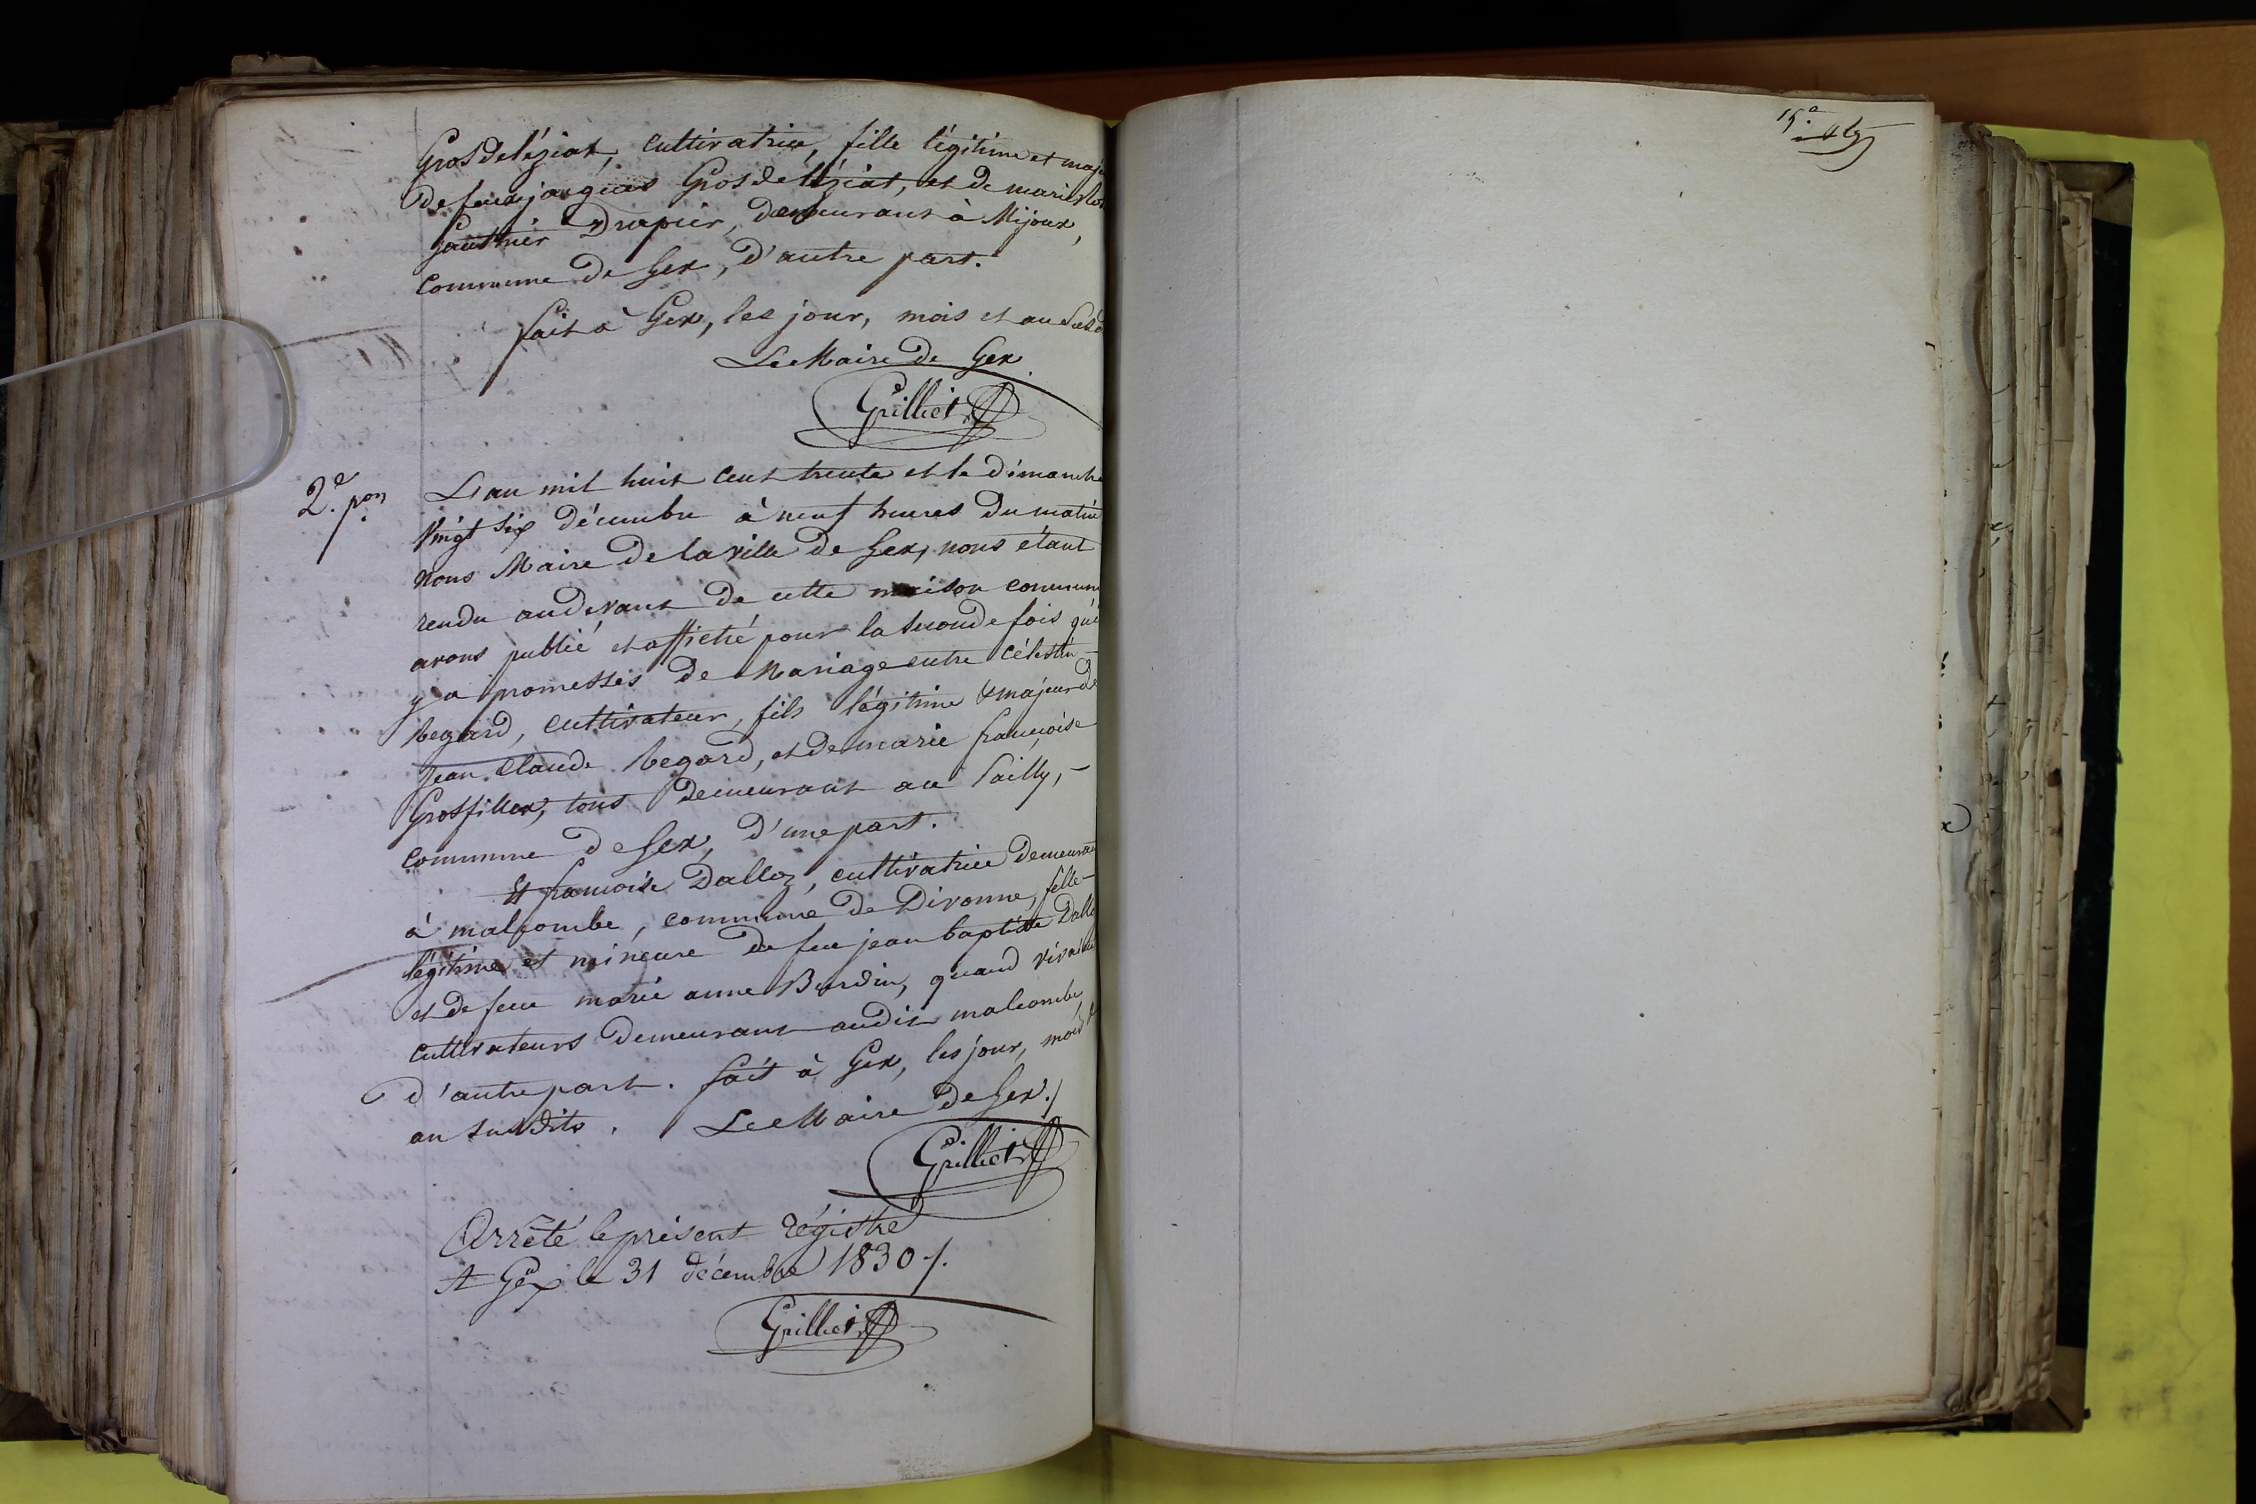 Grosdelégiat, cultivatrice, fille légitime et maj
de feu jacques Grosdelégiat, et de marie
Gauthier Drapier, demeurant à Mijoux,
commune de Gex, d'autre part.
fait à Gex, les jour, mois et an susd
Le Maire de Gex
Grilliet
2e. pon
L'an mil huit cent trente et le dimanche
vingt six décembre à neuf heures du matin
nous Maire de la ville de Gex, nous étant
rendu audevant de cette maison commune
avons publié et affiché pour la seconde fois qu'il
y a promesses de Mariage entre Célestin
Regard, cultivateur, fils légitime & majeur de
Jean Claude Regard, et de marie françoise
Grosfillex, tous demeurant au Sailly,
commune de Gex, d'une part.
Et françoise Dalloz, cultivatrice demeurant
à malcombe, commune de Divonne, fille
légitime et mineure de feu jean baptiste Dallo
et de feue marie anne Burdin, quand vivaient
cultivateurs demeurant audit malcombe
d'autre part. fait à Gex, les jour, mois &
an susdits. Le Maire de Gex ./
Grilliet
Arrêté le présent régistre
A Gex le 31 décembre 1830 ./.
Grilliet